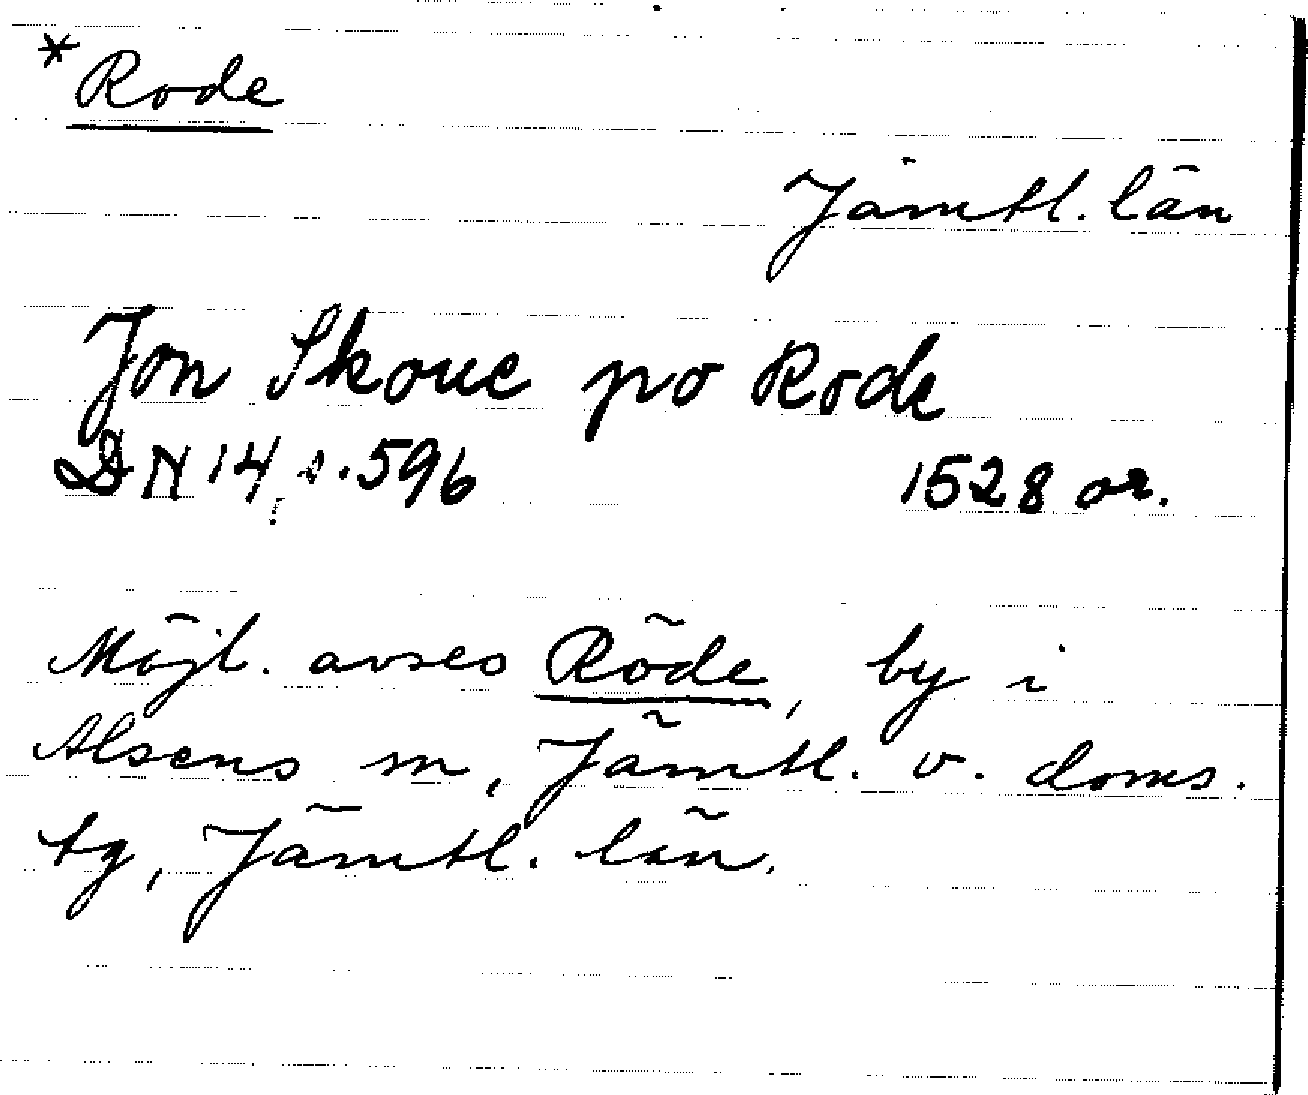 * Rode
Jämtl. län
Jon Skoue po Rode
DN 14, s. 596 1528 or.
Möjl. avses Röde, by i
Alsens sn, Jämtl. v. doms.
tg, Jämtl. län.